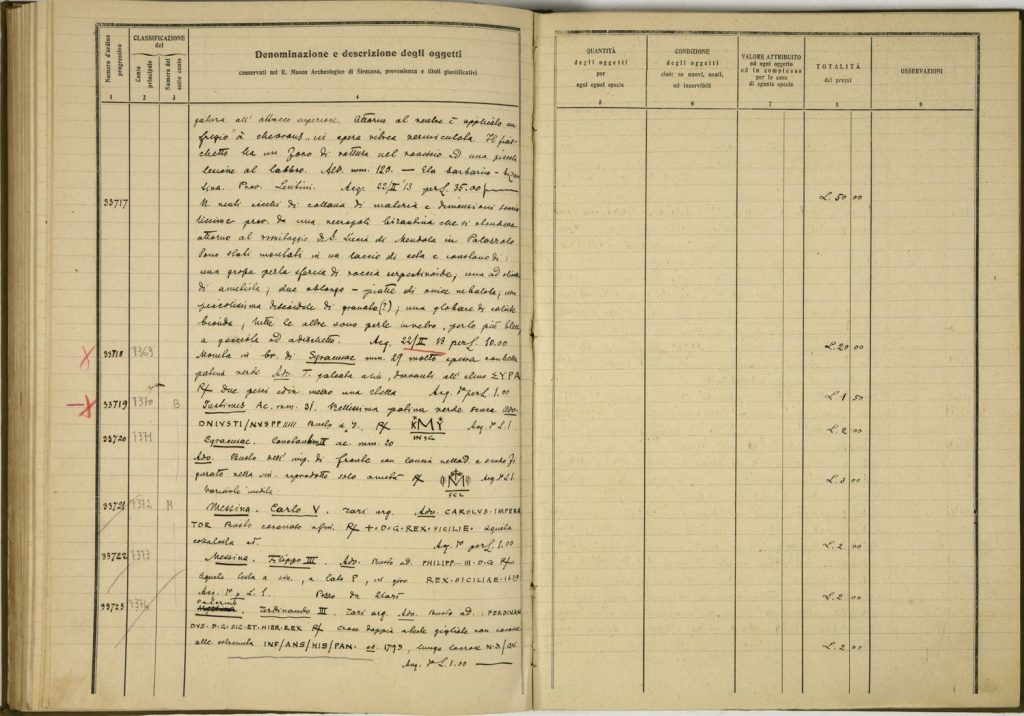 Numero d'ordine progressivo
CLASSIFICAZIONE del
Conto principale
Numero del sotto conto
Denominazione e descrizione degli oggetti
conservati nel R. Museo Archeologico di Siracusa, provenienza e titoli giustificativi
1 2 3 4
QUANTITÀ degli oggetti per ogni ogni specie
CONDIZIONE degli oggetti cioè: se nuovi, usati, od inservibili
VALORE ATTRIBUITO ad ogni oggetto ed in complesso per le cose di egual specie
TOTALITÀ dei prezzi
OSSERVAZIONI
5 6 7 8 9
gatura all' attacco superiore. Attorno al ventre è applicato un
fregio "à chevrons" in opera vitrea vermiculata. Il fia-
schetto ha un foro di rottura nel ed una piccola
lesione al labbro. Alt. mm. 120. — Età barbarico - bizan
tina. Prov. Lentini. Acq. 22/II 13 per L. 35.00
33717
N. venti di collana di materia e dimensioni svaria
tissime prov. da una necropoli bizantina che si
attorno al romitaggio di S. Lucia di Mendola in Palazzolo.
Sono stati montati in un laccio di seta e constano di:
una grossa perla sferica di roccia serpentinoide; una ad oliva
di ametista; due oblungo - piatte di onice; una
piccolissima discoidale di granato (?); una globare di
bionda; tutte le altre sono perle in vetro, per lo più bleu,
a gocciola od a dischetto. Acq. 22/II 13 per L. 10.00
L. 50 00
33718 7369
Moneta in br. di Syracusae mm. 29 molto spessa con bella
patina verde Adv. T. galeata a sin., davanti all' elmo ΣΥΡΑ
R/ due pesci mezzo una stella Acq. per L. 1.00
L. 20 00
33719 7370 B
Justinus Ae. mm. 31. Bellissima patina verde scura Adv.
DNIVSTI/NVSPP Busto a d. R/ KMY Acq. L. 1
L. 1 50
33720 7371
Syracusae. Constans II ae. mm. 20
Adv. Busto dell' imp. di fronte con lancia nella d. e scudo fi
gurato nella sin. riprodotto solo a metà R/ M Acq. L. 1.
Variante inedita
L. 2 00
33721 7372 M
Messina. Carlo V. Tarì arg. Adv. CAROLVS·IMPERA
TOR Busto coronato a sin. R/ +·D·G·REX·SICILIE aquila
ad. Acq. per L. 1.00
L. 3 00
33722 7373
Messina. Filippo III. Adv. Busto ad. PHILIPP·III·D·G R/
Aquila testa a sin., a lato P, in giro REX·SICILIAE·1619
Acq. L. 1. Pezzo da 2 tarì
L. 2 00
33723 7374
Palermo
Ferdinando III. Tarì arg. Adv. Busto ad.: FERDINAN
DVS·D·G·SIC·ET·HIER·REX R/ croce doppia gigliate con corone
alle estremità INF/ANS/HIS/PAN· 1793, lungo la croce N·D/
Acq. L. 1.00
L. 2 00
L. 2 00